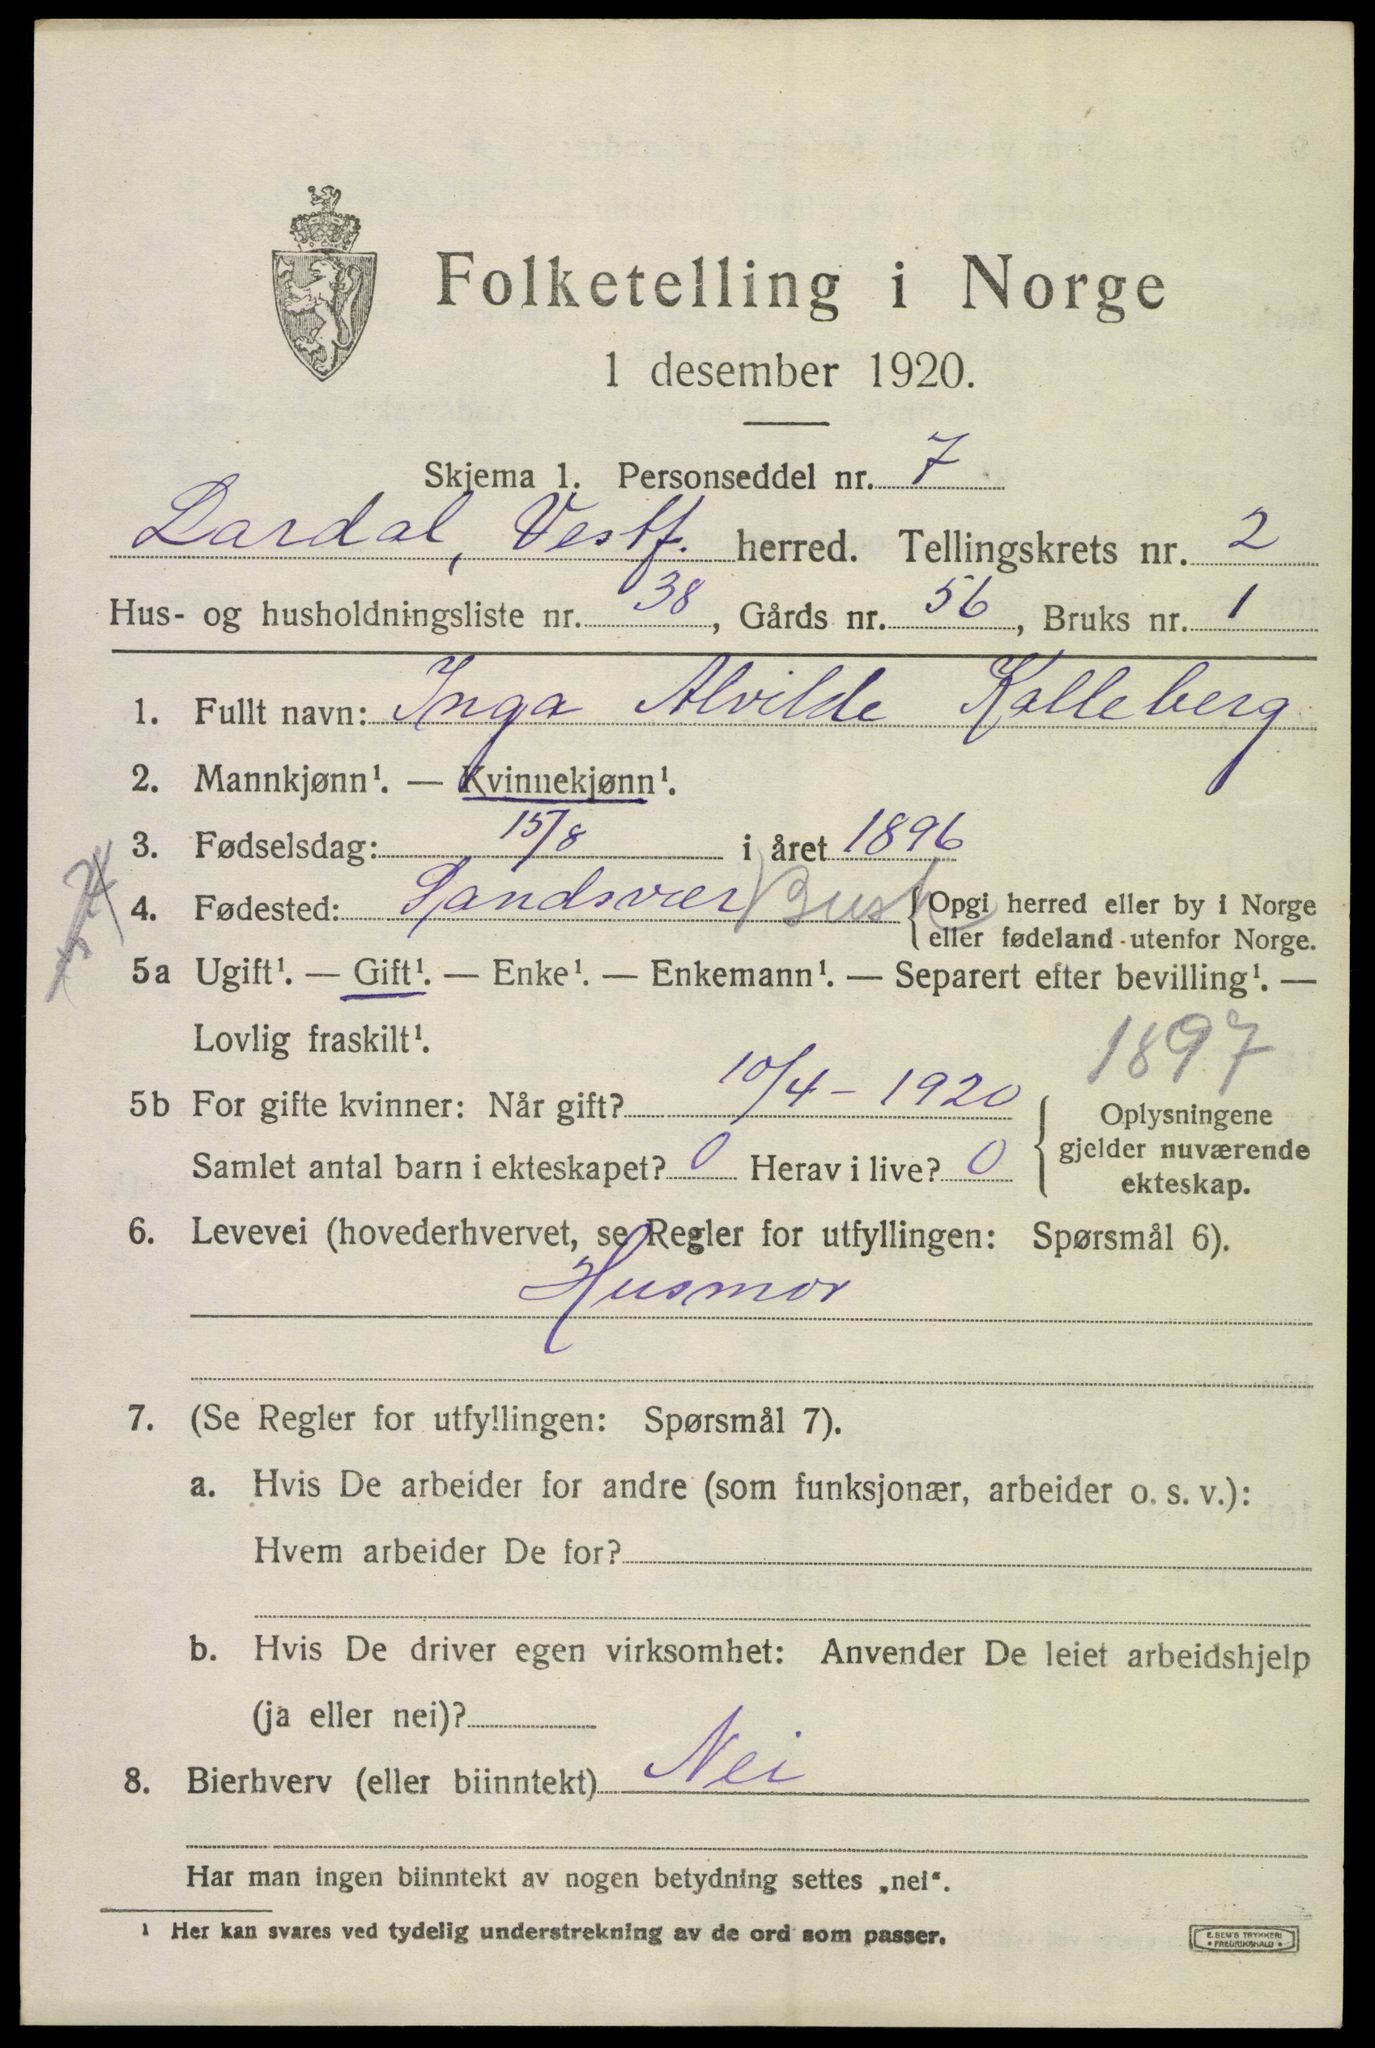 Folketelling i Norge
1 desember 1920.
Skjema 1. Personseddel nr. 7
Lardal, Vestf. herred. Tellingskrets nr. 2
Hus- og husholdningsliste nr. 38, Gårds nr. 56, Bruks nr. 1
1. Fullt navn: Inga Alvilde Kalleberg
2. Mannkjønn¹. — Kvinnekjønn¹.
3. Fødselsdag: 15/8 i året 1896
4. Fødested: Sandsvær Busk { Opgi herred eller by i Norge
eller fødeland utenfor Norge.
5a Ugift¹. — Gift¹. — Enke¹. — Enkemann¹. — Separert efter bevilling¹. —
Lovlig fraskilt¹.
1897
5b For gifte kvinner: Når gift? 10/4 - 1920
Samlet antal barn i ekteskapet? 0 Herav i live? 0
{ Oplysningene
gjelder nuværende
ekteskap.
6. Levevei (hovederhvervet, se Regler for utfyllingen: Spørsmål 6).
Husmor
7. (Se Regler for utfyllingen: Spørsmål 7).
a. Hvis De arbeider for andre (som funksjonær, arbeider o. s. v.):
Hvem arbeider De for?
b. Hvis De driver egen virksomhet: Anvender De leiet arbeidshjelp
(ja eller nei)?
8. Bierhverv (eller biinntekt) Nei
Har man ingen biinntekt av nogen betydning settes „nei“.
¹ Her kan svares ved tydelig understrekning av de ord som passer.
E. SEM'S TRYKKERI
• FREDRIKSHALD •